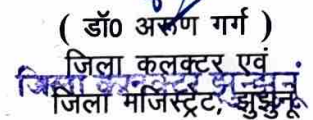 ( डॉ0 अरूण गर्ग )
जिला कलक्टर एवं
जिला कलक्टर झुन्झुनूं
जिला मजिस्ट्रेट, झुझुनू